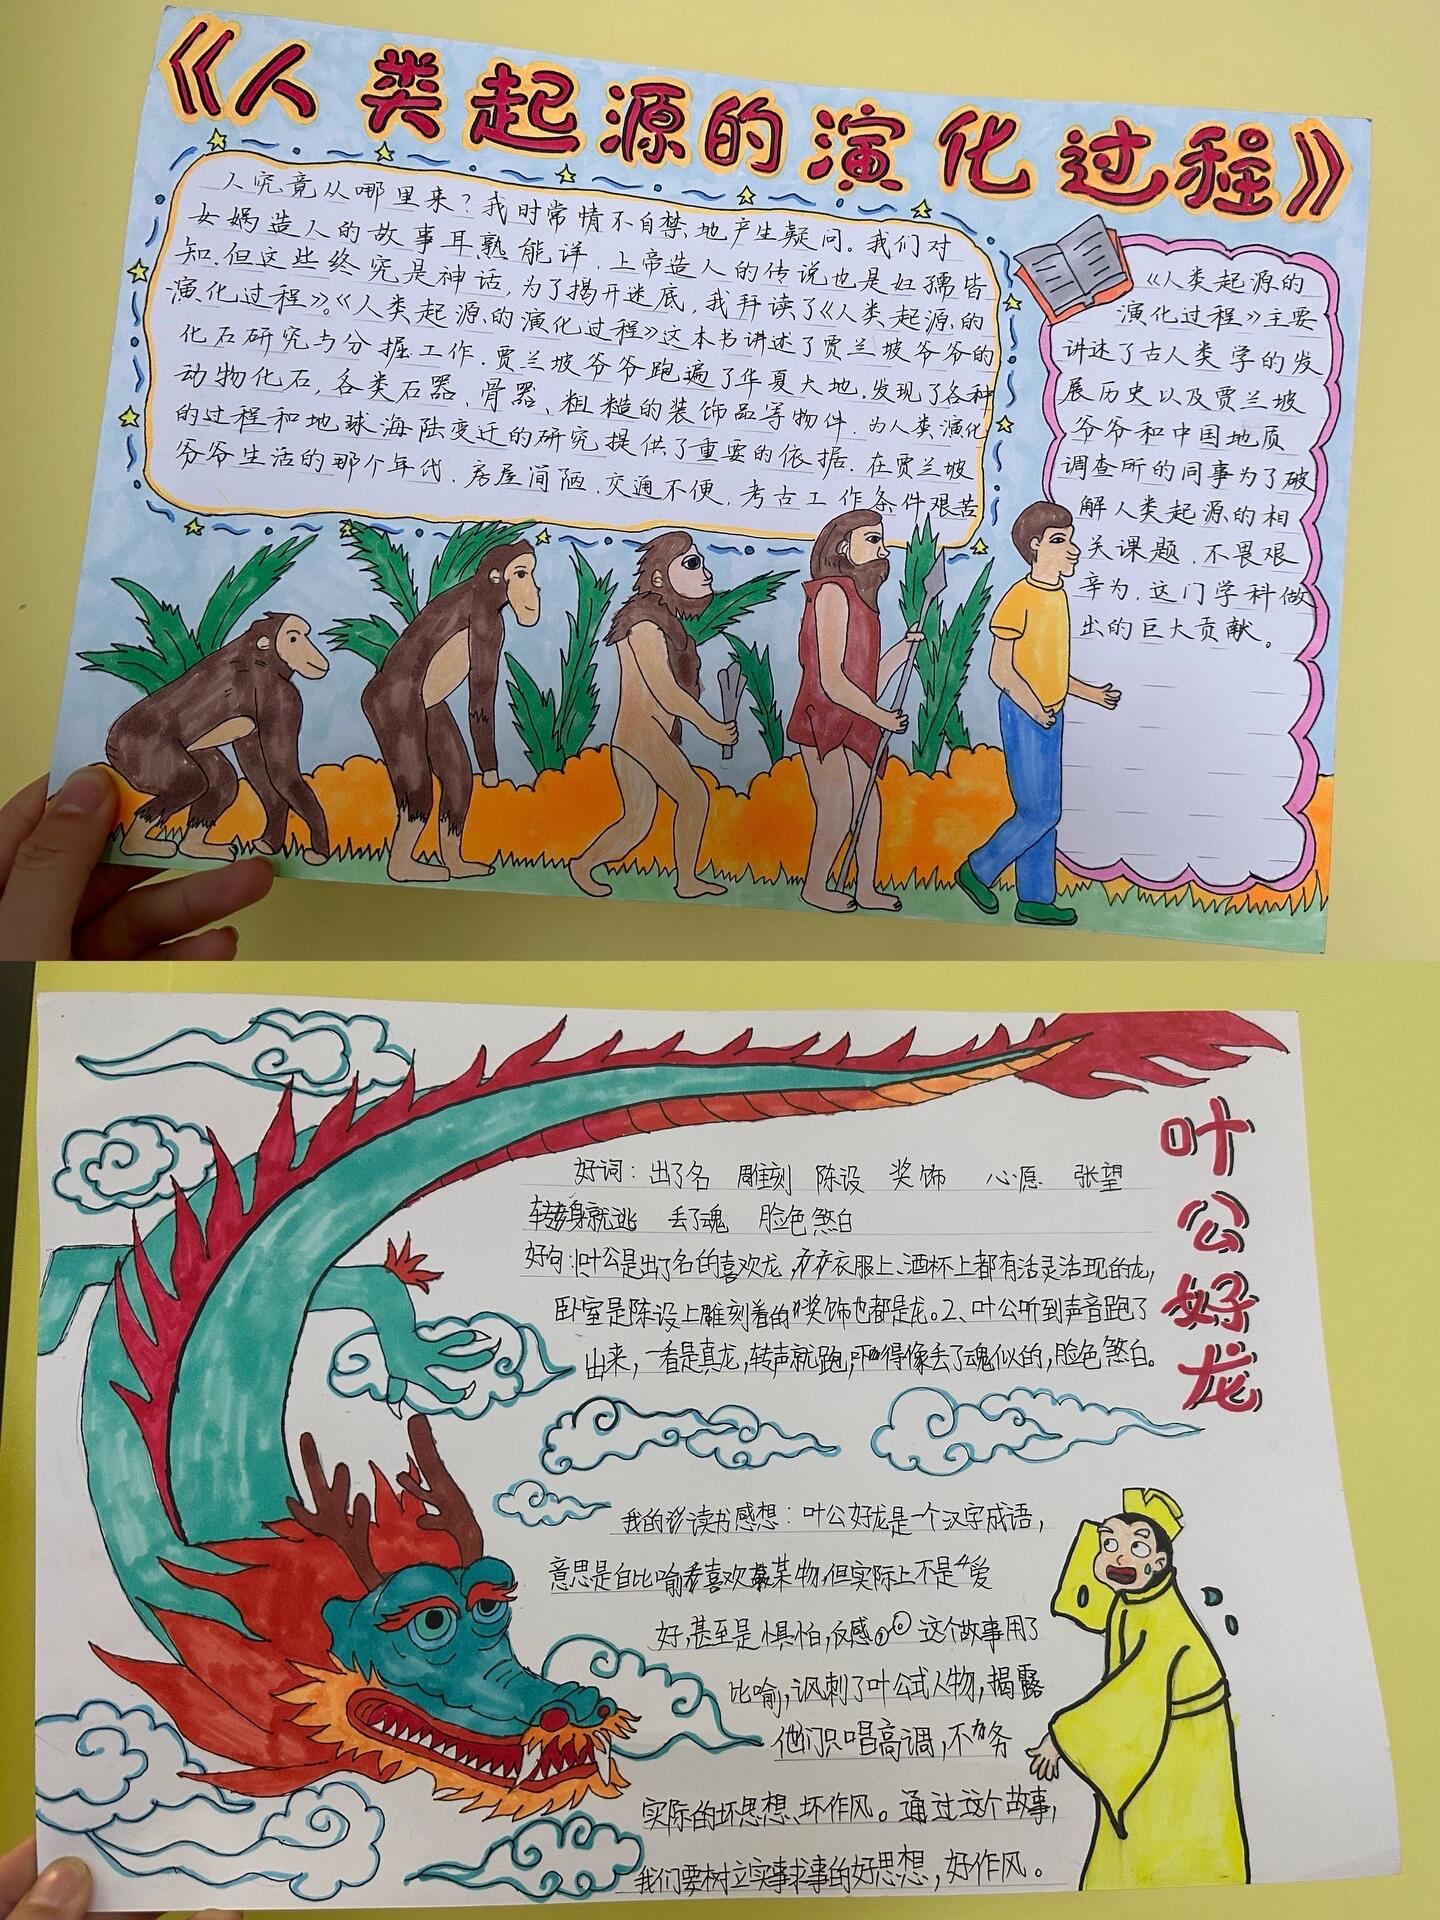 《人类起源的演化过程》
人究竟从哪里来?我时常情不自禁地产生疑问。我们对
女娲造人的故事耳熟能详.上帝造人的传说也是妇孺皆
知.但这些终究是神话,为了揭开迷底,我拜读了《人类起源的
演化过程》。《人类起源的演化过程》这本书讲述了贾兰坡爷爷的
化石研究与分掘工作.贾兰坡爷爷跑遍了华夏大地.发现了各种
动物化石,各类石器、骨器、粗糙的装饰品等物件.为人类演化
的过程和地球海陆变迁的研究提供了重要的依据.在贾兰坡
爷爷生活的那个年代.房屋简陋.交通不便.考古工作条件艰苦
《人类起源的
演化过程》主要
讲述了古人类学的发
展历史以及贾兰坡
爷爷和中国地质
调查所的同事为了破
解人类起源的相
关课题.不畏艰
辛为.这门学科做
出的巨大贡献。
叶公好龙
好词:出了名 雕刻 陈设 奖饰 心愿 张望
转身就逃 丢了魂 脸色煞白
好句:1叶公是出了名的喜欢龙,衣服上、酒杯上都有活灵活现的龙,
卧室是陈设上雕刻着的奖饰也都是龙。2、叶公听到声音跑了
出来,一看是真龙,转声就跑,吓得像丢了魂似的,脸色煞白。
我的读书感想:叶公好龙是一个汉字成语,
意思是自比喻喜欢某物,但实际上不是爱
好,甚至是惧怕,反感。这个故事用了
比喻,讽刺了叶公式人物,揭露
他们只唱高调,不务
实际的坏思想、坏作风。通过这个故事,
我们要树立实事求事的好思想,好作风。